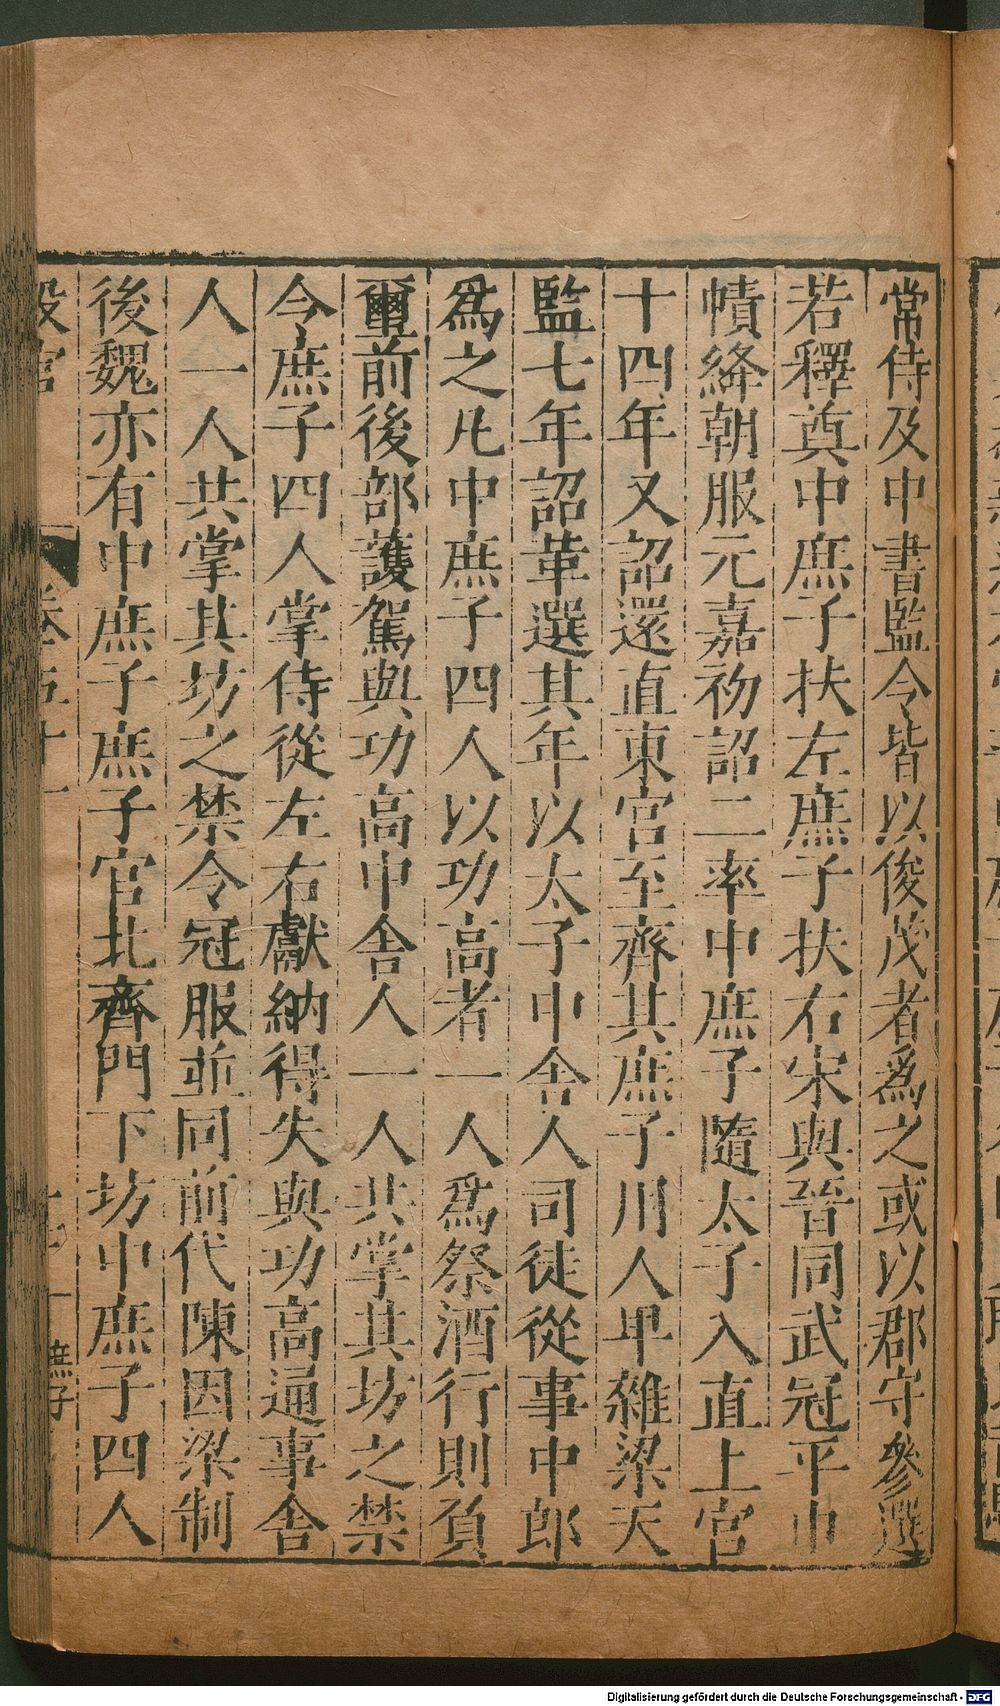 常侍及中書監令皆以俊茂者爲之或以郡守參選
若釋奠中庶子扶左庶子扶右宋與晉同武冠平巾
幘絳朝服元嘉初詔二率中庶子隨太子入直上宮
十四年又詔還直東宮至齊其庶子用人卑雜梁天
監七年詔革選其年以太子中舍人司徒從事中郎
爲之凡中庶子四人以功高者一人爲祭酒行則負
璽前後部護駕與功高中舍人一人共掌其坊之禁
令庶子四人掌侍從左右獻納得失與功高通事舍
人一人共掌其坊之禁令冠服並同前代陳因梁制
後魏亦有中庶子庶子官北齊門下坊中庶子四人
卷五十一
庶子
Digitalisierung gefördert durch die Deutsche Forschungsgemeinschaft - DFG